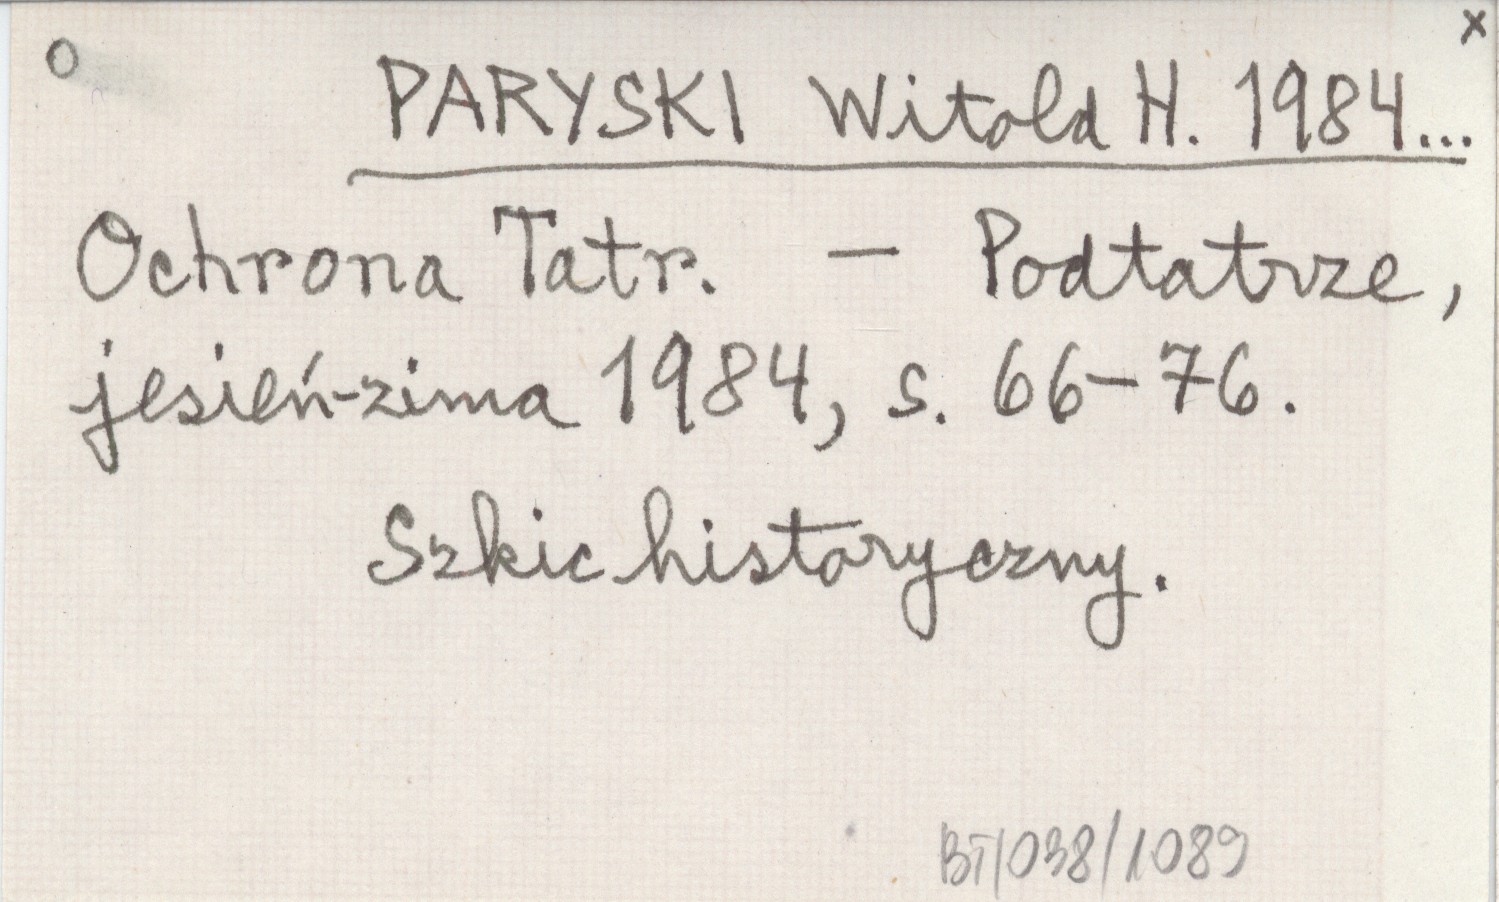 o
x
PARYSKI Witold H. 1984...
Ochrona Tatr. — Podtatrze,
jesień-zima 1984, s. 66-76.
Szkic historyczny.
BT/038/1089